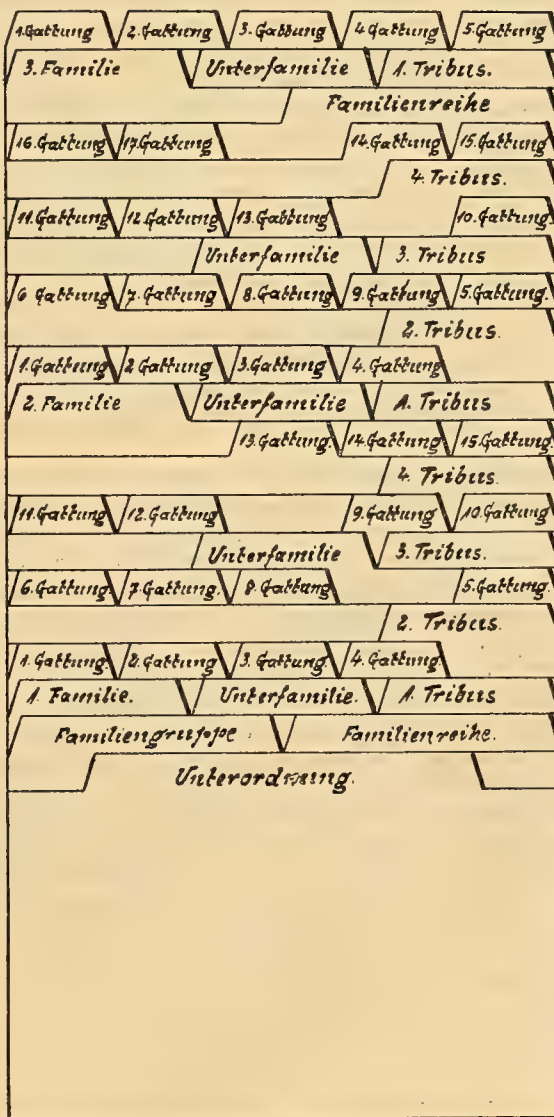 1. Gattung 2. Gattung 3. Gattung 4. Gattung 5. Gattung
3. Familie Unterfamilie 1. Tribus.
Familienreihe
16. Gattung 17. Gattung 14. Gattung 15. Gattung
4. Tribus.
11. Gattung 12. Gattung 13. Gattung 10. Gattung
Unterfamilie 3. Tribus
6 Gattung 7. Gattung 8. Gattung 9. Gattung 5. Gattung.
2. Tribus.
1. Gattung 2 Gattung 3. Gattung 4. Gattung
2. Familie Unterfamilie 1. Tribus
13. Gattung. 14. Gattung 15. Gattung
4. Tribus.
11. Gattung 12. Gattung 9. Gattung 10. Gattung
Unterfamilie 3. Tribus.
6. Gattung 7. Gattung. 8. Gattung 5. Gattung.
2. Tribus.
1. Gattung. 2. Gattung 3. Gattung. 4. Gattung.
1. Familie. Unterfamilie. 1. Tribus
Familiengruppe Familienreihe.
Unterordnung.